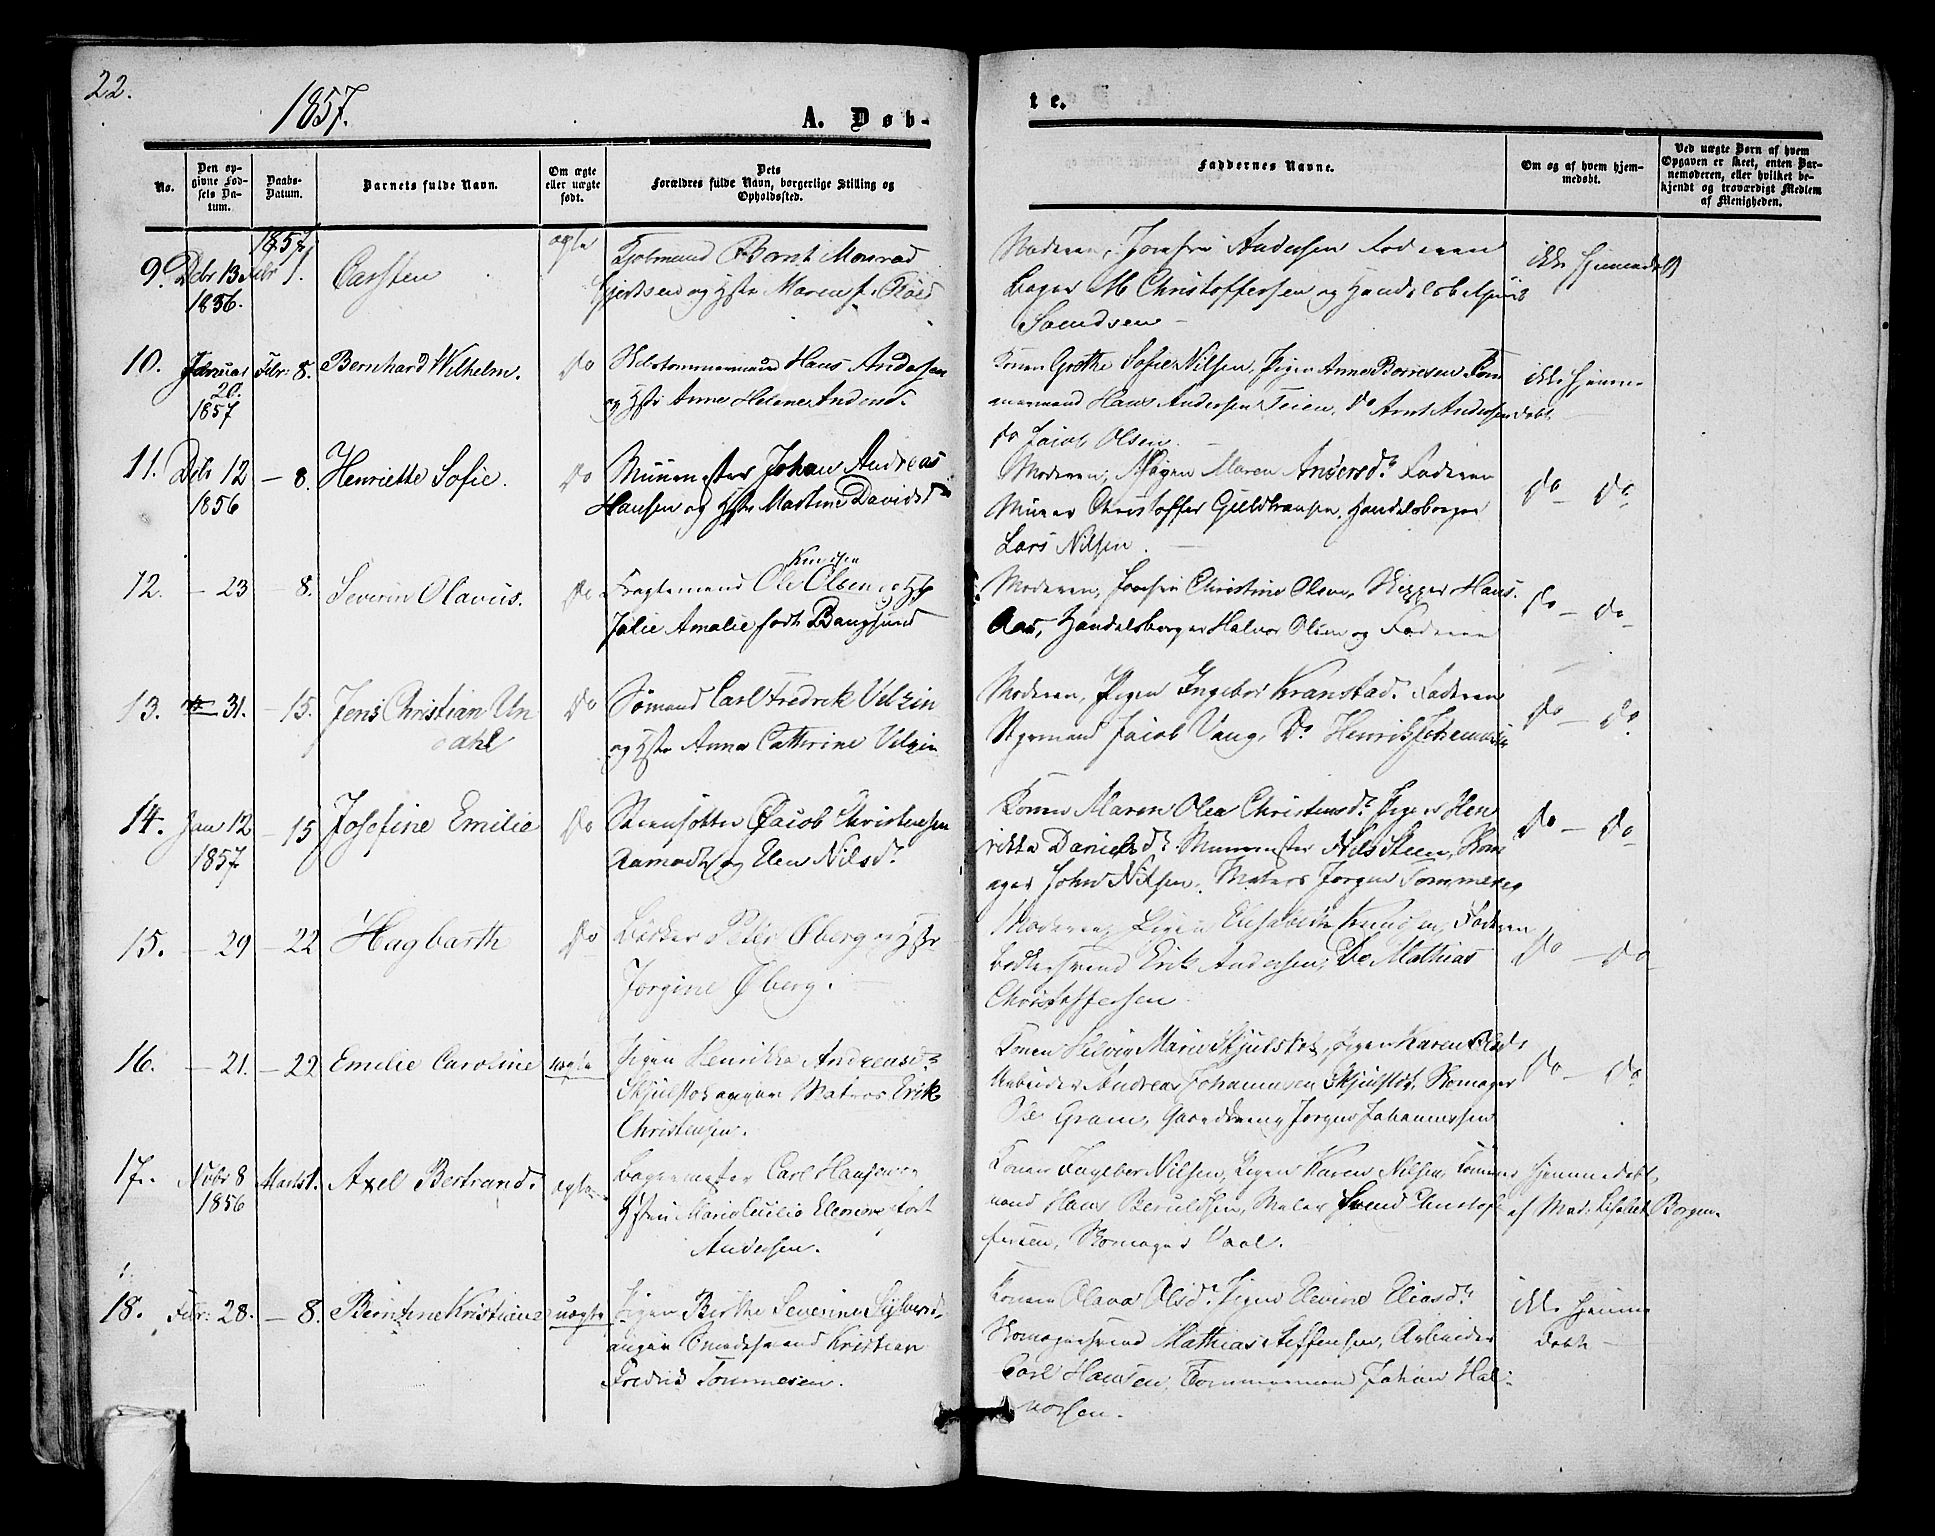 22.
1857.
A. Døb-
te.
No.
Den op-
givne Fød-
sels Da-
tum.
Daabs-
Datum.
Barnets fulde Navn.
Om ægte
eller uægte
født.
Dets
Forældres fulde Navn, borgerlige Stilling og
Opholdssted.
Faddernes Navne.
Om og af hvem hjem-
medøbt.
Ved uægte Børn af hvem
Opgaven er skeet, enten Bar-
nemoderen, eller hvilket be-
kjendt og troværdigt Medlem
af Menigheden.
1857
9. Debr 13 Febr 1. Carsten ægte Bernt Monrad
1856. Gjertsen og Hstr Maren f. Røed
Moderen, Jomfru Andersen Faderen
Bager M Christoffersen og
ikke hjemmedøbt
10. Januar Febr: 8. Bernhard Wilhelm. Do Hans Andersen
20. og Hstr Anne Helene
1857
Konen Grethe Sofie Nilsen, Pigen Anne Tøm
mermand Hans Andersen Teien, Do Arnt Andersen
Do Jacob Olsen.
ikke hjemme
døbt.
11. Debr 12 – 8. Henriette Sofie. Do Muurmester Johan Andreas
1856 Hansen og Hstr Martine Davidsd
Moderen, Pigen Maren Andersdr Faderen
Murer Christoffer Guldbransen, Handelsborger
Lars Nilsen.
Do – Do
12. – 23 – 8. Severin Olavus. Do Fragtemand Ole Olsen og H
Knudsen
Julie Amalie født Bangsund
Moderen, Jomfru Christine Olsen, Skipper Hans
Aas, Handelsborger Halvor Olsen og Faderen
Do – Do
13. 31. – 15. Jens Christian Un Do Sømand Carl Fredrik Velzin
dahl og Hstr Anna Cathrine Velzin
Moderen, Pigen Ingebor Kranstad. Faderen
Styrmand Jacob Vang, Do Henrik
Do – Do
14. Jan 12 – 15 Josefine Emilie Do Jacob Christensen
1857 Aamodt og Elen Nilsdr
Konen Maren Olea Christensdr Pigen Hen
rikke Danielsdr Murmester Nils Steen, Skom
ager John Nilsen, Matros Jørgen
Do – Do
15. – 29 – 22 Hagbarth Do Bødker Peter Øberg og Hstr
Jørgine Øberg.
Moderen, Pigen Elisabeth Knudsen, Faderen
Bødkersvend Erik Andersen, Do Mathias
Christoffersen
Do – Do
16. – 21. – 22 Emilie Caroline uægte Pigen Henrikke Andreasdr
Skjulstok angiver Matros Erik
Christensen.
Konen Hedvig Marie Skjulstok, Pigen Karen
Arbeider Andreas Johannesen Skjulstok, Skomager
Ole Gram, Jørgen Johannessen
Do – Do
17. Nobr 8 Marts 1. Axel Bertrand. ægte Bagermester Carl Hansen og
1856 Hstru Marie Cecilie Elenore født
Andersen.
Konen Ingebor Nilsen, Pigen Karen Nilsen, Tømmer
mand Hans Beruldsen, Maler Svend Christof
fersen, Skomager Vaal.
hjemmedøbt
af Mad: Elisabet Borgen.
18. Febr: 28. – 8. Berntine Kristiane uægte Pigen Berthe Severine
angiver Kristian
Fredrik Tommesen.
Konen Olava Olsdr Pigen Elevine Eliasdr
Skomagersvend Mathias Steffensen, Arbeider
Carl Hansen, Tømmermand Johan Hal-
vorsen.
ikke hjemme
døbt